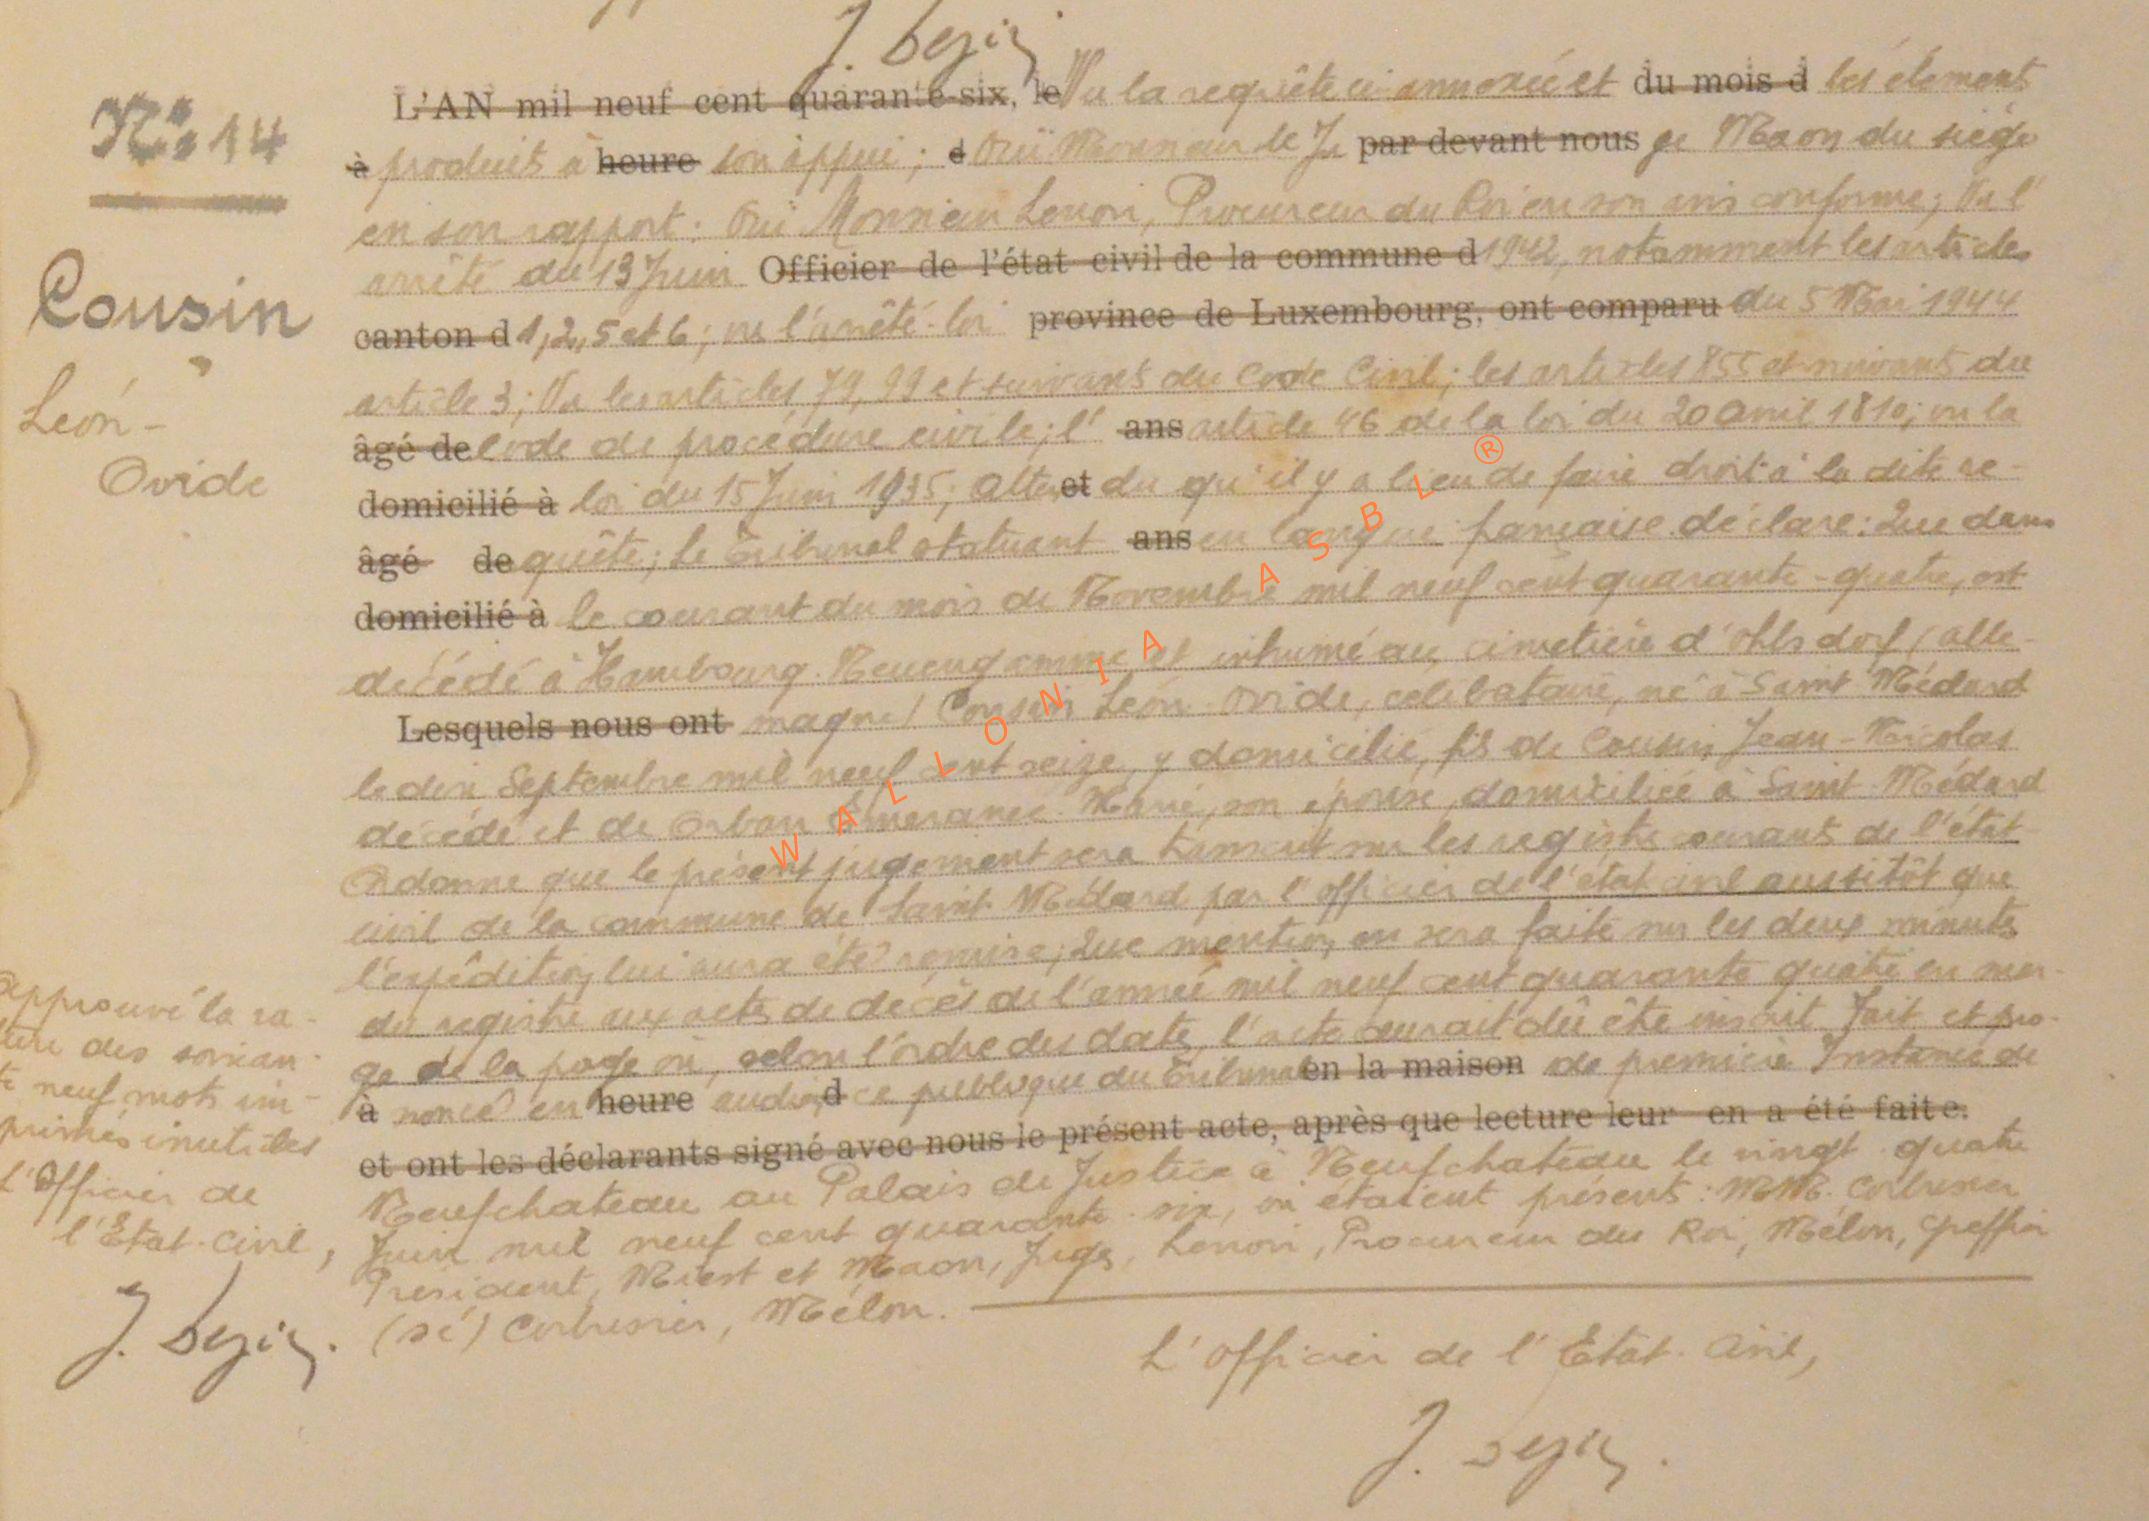 J. Dezic
N° 14
Cousin
Léon-
Ovide
L'AN mil neuf cent quarante-six, le Vu la requête ci-annexée et du mois d les élément
à produits à heure son appui ; d Ouï Monsieur le Ju par devant nous ge Maon du siège
en son rapport ; Ouï Monsieur Lenoir, Procureur du Roi en son avis conforme ; Vu l'
arrêté du 13 Juin Officier de l'état civil de la commune d 1942, notamment les articles
canton d 1, 2, 5 et 6 ; vu l'arrêté-loi province de Luxembourg, ont comparu du 5 Mai 1944
article 3 ; Vu les articles 79, 99 et suivants du Code Civil ; les articles 855 et suivants du
âgé de Code de procédure civile ; l' ans article 46 de la loi du 20 avril 1810 ; vu la
domicilié à loi du 15 Juin 1935 ; Atten et du qu'il y a lieu de faire droit à la dite re-
âgé de quête ; Le Tribunal statuant ans en langue française déclare : Que dans
domicilié à le courant du mois de Novembre mil neuf cent quarante-quatre, est
décédé à Hambourg-Neuengamme et inhumé au cimetière d'Ohlsdorf (alle-
Lesquels nous ont magne) Cousin Léon-Ovide, célibataire, né à Saint-Médard
le dix Septembre mil neuf cent seize, y domicilié, fils de Cousin, Jean-Nicolas
décédé et de Orban Emerance-Marie, son épouse, domiciliée à Saint-Médard
Ordonne que le présent jugement sera transcrit sur les registres courants de l'état
civil de la commune de Saint-Médard par l'officier de l'état civil aussitôt que
l'expédition lui aura été remise ; Que mention en sera faite sur les deux minutes
du registre aux actes de décès de l'année mil neuf cent quarante quatre en mar-
ge de la page où, selon l'ordre des dates, l'acte aurait dû être inscrit. Fait et pro-
à noncé en heure audien d ce publique du Tribunal en la maison de première Instance de
et ont les déclarants signé avec nous le présent acte, après que lecture leur en a été faite.
Neufchateau au Palais de Justice à Neufchateau le vingt-quatre
Juin mil neuf cent quarante-six, où étaient présents : MM. Corbusier
Président, Miest et Maon, Juges, Lenoir, Procureur du Roi, Mélon, Greffier
(sé) Corbusier, Mélon.
Approuvé la ra-
ture des soixan-
te neuf mots im-
primés inutiles
L'Officier de
l'Etat-Civil,
J. Dezic.
L'Officier de l'Etat-Civil,
J. Dezic.
WALLONIA ASBL ®